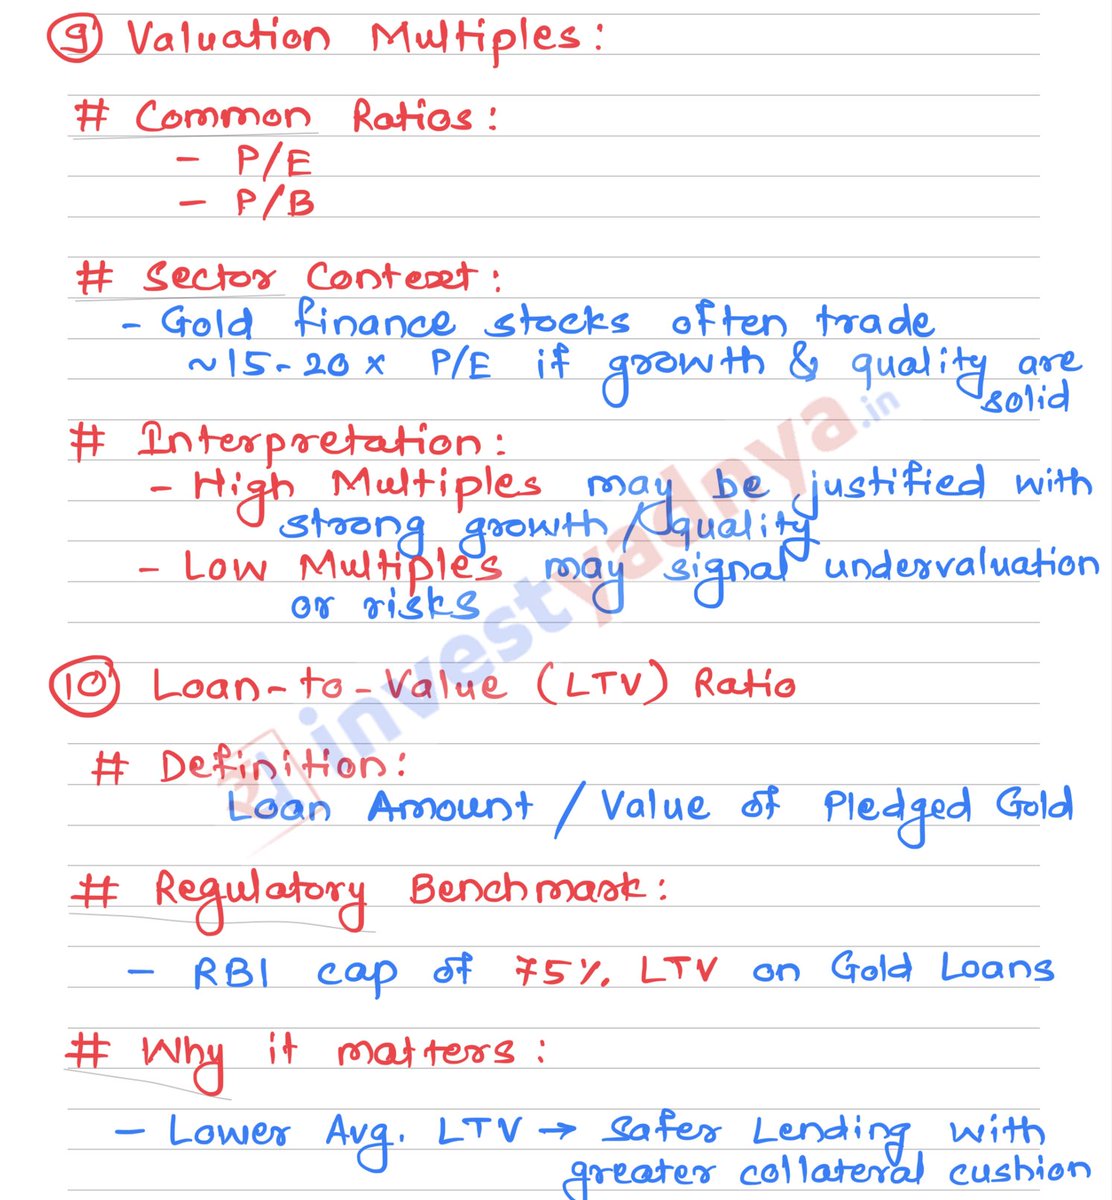 9 Valuation Multiples:
# Common Ratios:
- P/E
- P/B
# Sector Context:
- Gold finance stocks often trade
~15-20x P/E if growth & quality are
solid
# Interpretation:
- High Multiples may be justified with
strong growth/quality
- Low Multiples may signal undervaluation
or risks
investyadnya.in
10 Loan-to-Value (LTV) Ratio
# Definition:
Loan Amount / Value of Pledged Gold
# Regulatory Benchmark:
- RBI cap of 75% LTV on Gold Loans
# Why it matters:
- Lower Avg. LTV → Safer Lending with
greater collateral cushion